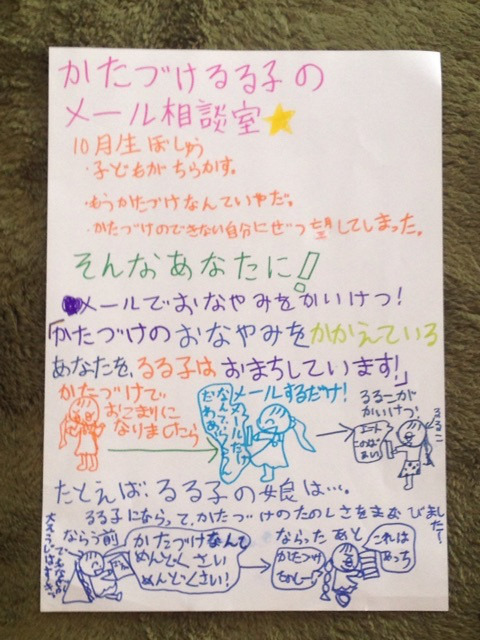 かたづけるる子の
メール相談室
10月生ぼしゅう
・子どもがちらかす。
・もうかたづけなんていやだ。
・かたづけのできない自分にぜつ望してしまった。
そんなあなたに!
メールでおなやみをかいけつ!
「かたづけのおなやみをかかえている
あなたを、るる子はおまちしています!」
かたづけで
おこまりに
なりましたら
メールするだけ!
るるこが
かいけつ!
るるこ
たとえば、るる子の娘は…。
るる子にならって、かたづけのたのしさをまなびました!
ならう前
かたづけなんて
めんどくさい
めんどくさい!
ならったあと
かたづけ
たのしー
これは
あっち